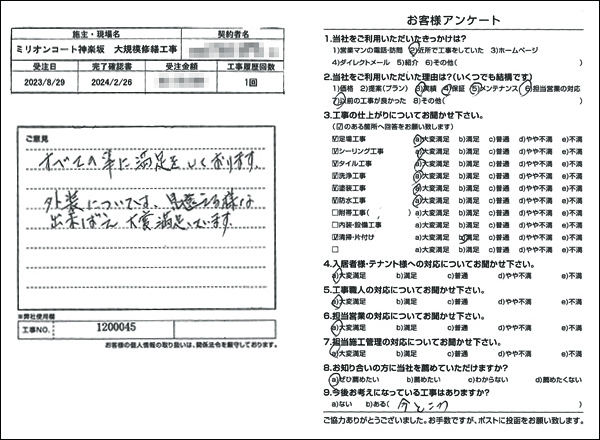 施主・現場名
契約者名
ミリオンコート神楽坂 大規模修繕工事
受注日
完了確認書
受注金額
工事履歴回数
2023/8/29
2024/2/26
1回
ご意見
すべての事に満足をしております。
外装については、見違える様な
出来ばえ 大変満足しています。
※弊社使用欄
工事NO.
1200045
お客様の個人情報の取り扱いは、関係法令を厳守しております。
お客様アンケート
1.当社をご利用いただいたきっかけは?
1)営業マンの電話・訪問 2)近所で工事をしていた 3)ホームページ
4)ダイレクトメール 5)紹介 6)その他( )
2.当社をご利用いただいた理由は?(いくつでも結構です)
1)価格 2)提案(プラン) 3)実績 4)保証 5)メンテナンス 6)担当営業の対応
7)以前の工事が良かった 8)その他( )
3.工事の仕上がりについてお聞かせ下さい。
(☑のある箇所へ回答をお願い致します)
☑足場工事 a)大変満足 b)満足 c)普通 d)やや不満 e)不満
☑シーリング工事 a)大変満足 b)満足 c)普通 d)やや不満 e)不満
☑タイル工事 a)大変満足 b)満足 c)普通 d)やや不満 e)不満
☑洗浄工事 a)大変満足 b)満足 c)普通 d)やや不満 e)不満
☑塗装工事 a)大変満足 b)満足 c)普通 d)やや不満 e)不満
☑防水工事 a)大変満足 b)満足 c)普通 d)やや不満 e)不満
☐附帯工事( ) a)大変満足 b)満足 c)普通 d)やや不満 e)不満
☐内装・設備工事 a)大変満足 b)満足 c)普通 d)やや不満 e)不満
☑清掃・片付け a)大変満足 b)満足 c)普通 d)やや不満 e)不満
☐ a)大変満足 b)満足 c)普通 d)やや不満 e)不満
4.入居者様・テナント様への対応についてお聞かせ下さい。
a)大変満足 b)満足 c)普通 d)やや不満 e)不満
5.工事職人の対応についてお聞かせ下さい。
a)大変満足 b)満足 c)普通 d)やや不満 e)不満
6.担当営業の対応についてお聞かせ下さい。
a)大変満足 b)満足 c)普通 d)やや不満 e)不満
7.担当施工管理の対応についてお聞かせ下さい。
a)大変満足 b)満足 c)普通 d)やや不満 e)不満
8.お知り合いの方に当社を薦めていただけますか?
a)ぜひ薦めたい b)薦めたい c)わからない d)薦めたくない
9.今後お考えになっている工事はありますか?
a)ない b)ある( 今ところ )
ご協力ありがとうございました。お手数ですが、ポストに投函をお願い致します。